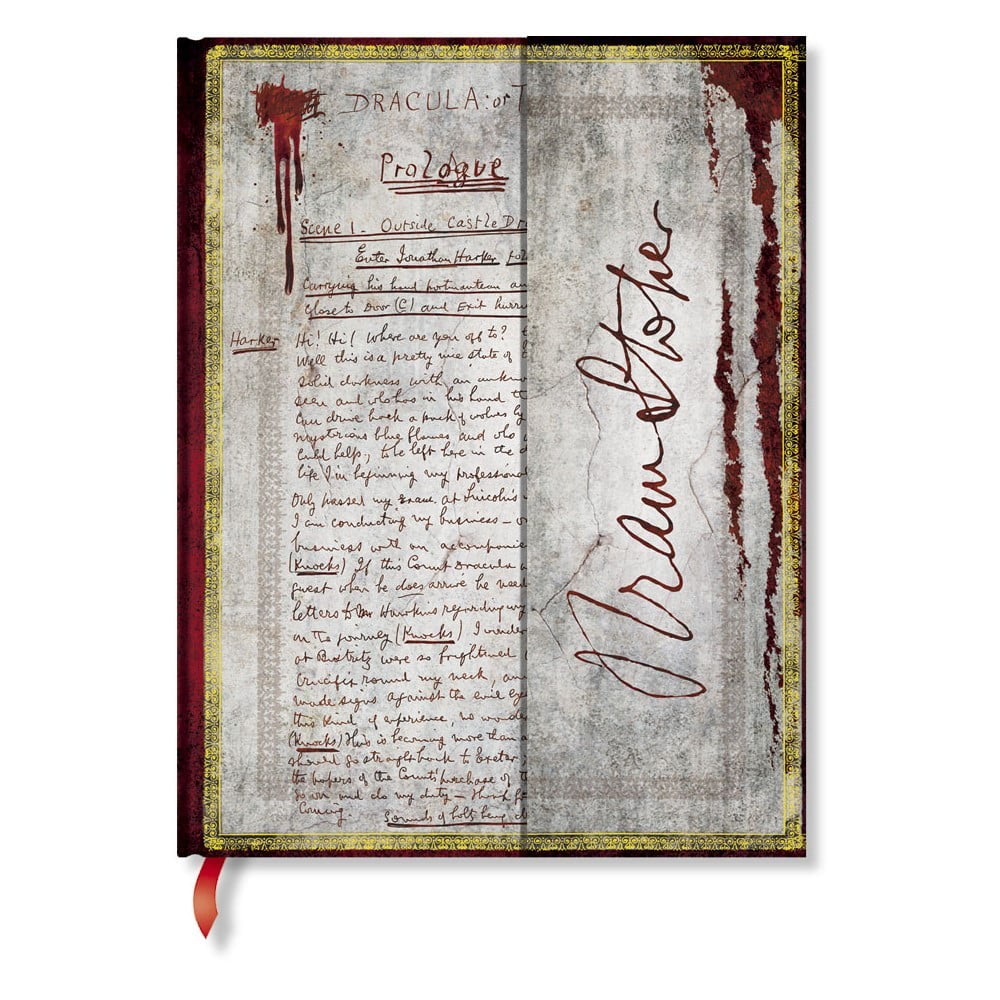 DRACULA: or T
Prologue
Scene 1. Outside Castle Dr
Enter Jonathan Harker fol
Carrying his hand portmanteau an
Close to Door (C) and Exit hurri
Harker
Hi! Hi! Where are you off to?
Well this is a pretty nice state of t
solid darkness with an unkno
seen and who has in his hand t
Can drive back a pack of wolves by
mysterious blue flames and who
could help, to be left here in the d
life I'm beginning my professional
Only passed my exam. at Lincoln's
I am conducting my business – o
business with an accompanie
(Knocks) If this Count Dracula
guest when he does arrive he need
letters to Mr Hawkins regarding my
on the journey (Knocks) I wonder
at Bistritz were so frightened
Crucifix round my neck, an
made signs against the evil eye
this kind of experience, no wonde
(Knocks) This is becoming more than a
should go straight back to Exeter
the papers of the Count's purchase of t
go on and do my duty –
Coming.
Sounds of bolts being d
Bram Stoker